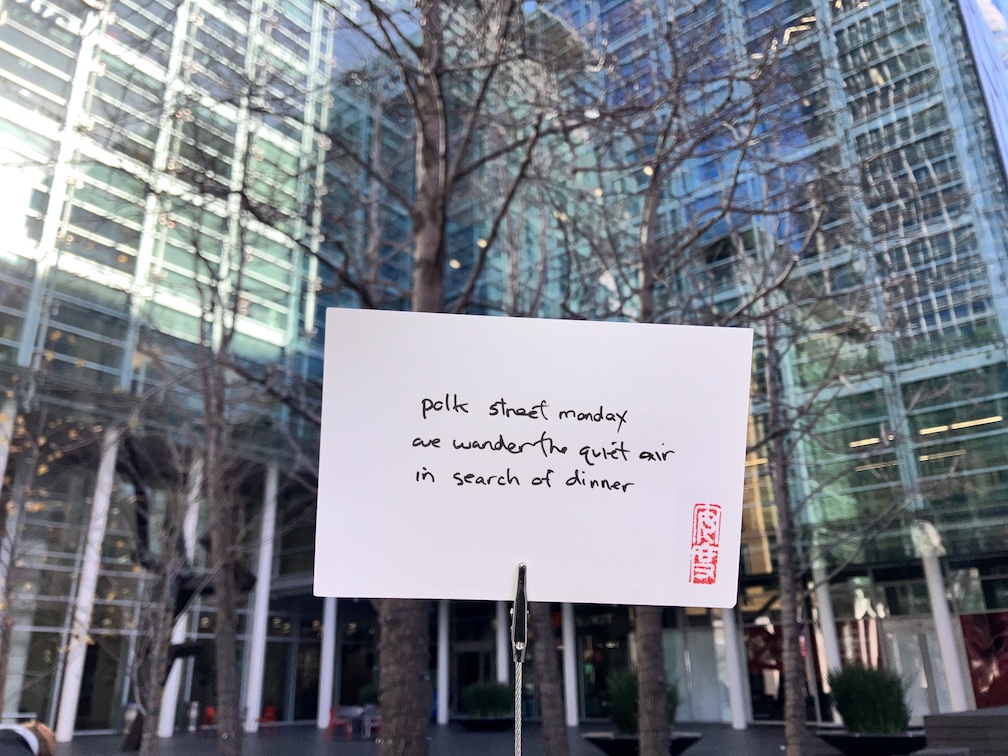 polk street monday
we wander the quiet air
in search of dinner